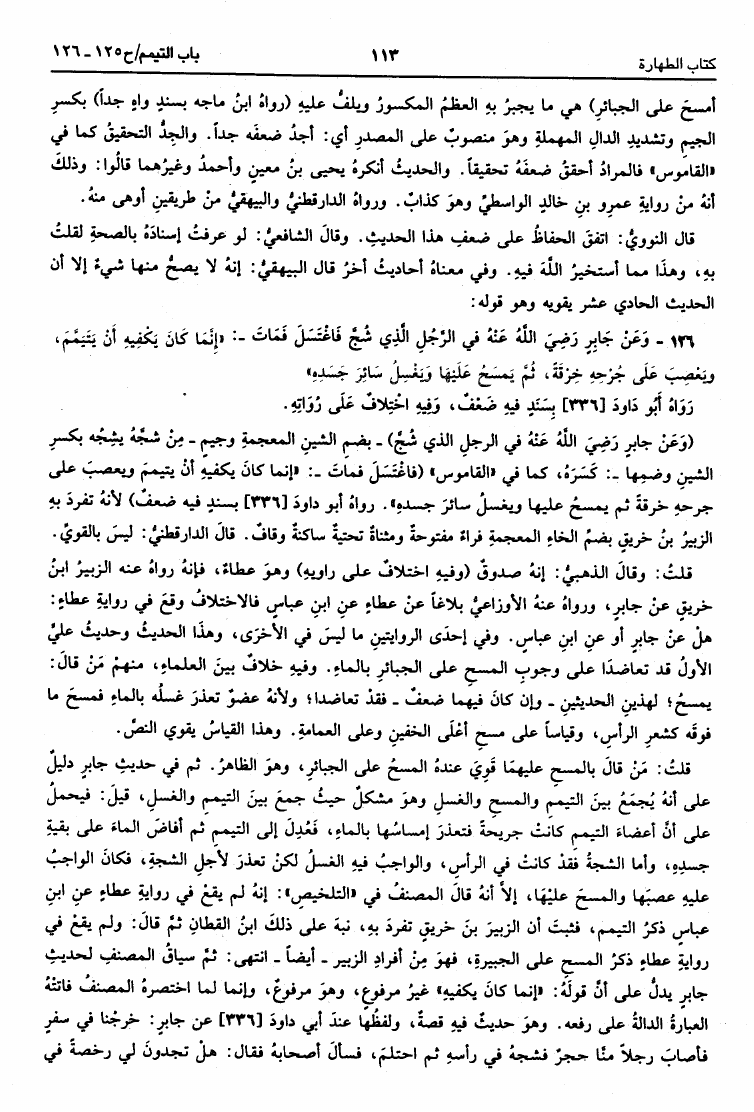 كتاب الطهارة ١١٣ باب التيمم/ح١٢٥ ـ ١٢٦
أمسحَ على الجبائرِ) هي ما يجبرُ بهِ العظمُ المكسورُ ويلفُّ عليهِ (رواهُ ابنُ ماجه بسندٍ واهٍ جداً) بكسرِ
الجيمِ وتشديدِ الدالِ المهملةِ وهوَ منصوبٌ على المصدرِ أي: أجدُ ضعفَه جداً. والجِدُّ التحقيقُ كما في
«القاموس» فالمرادُ أحققُ ضعفَهُ تحقيقاً. والحديثُ أنكرهُ يحيى بنُ معينٍ وأحمدُ وغيرُهما قالُوا: وذلكَ
أنهُ منْ روايةِ عمرِو بنِ خالدٍ الواسطيِّ وهوَ كذابٌ. ورواهُ الدارقطنيُّ والبيهقيُّ منْ طريقينِ أوهى منهُ.
قال النوويُّ: اتفقَ الحفاظُ على ضعفِ هذا الحديثِ. وقالَ الشافعيُّ: لو عرفتُ إسنادَهُ بالصحةِ لقلتُ
بهِ، وهذا مما أستخيرُ اللَّهَ فيهِ. وفي معناهُ أحاديثُ أخرُ قال البيهقيُّ: إنهُ لا يصحُّ منها شيءٌ إلا أن
الحديث الحادي عشر يقويه وهو قوله:
١٢٦ - وَعَنْ جَابِرٍ رَضِيَ اللَّهُ عَنْهُ في الرَّجُلِ الَّذِي شُجَّ فَاغْتَسَلَ فَمَاتَ ـ: «إِنَّمَا كَانَ يَكْفِيهِ أَنْ يَتَيَمَّمَ،
ويَعْصِبَ عَلَى جُرْحِهِ خِرْقَةً، ثُمَّ يَمْسَحُ عَلَيْهَا وَيَغْسِلُ سَائِرَ جَسَدِهِ»
رَوَاهُ أَبُو دَاودَ [٣٣٦] بِسَنَدٍ فيهِ ضَعْفٌ، وَفِيهِ اخْتِلافٌ عَلَى رُوَاتِهِ.
(وَعَنْ جابرٍ رَضِيَ اللَّهُ عَنْهُ في الرجلِ الذي شُجَّ) ـ بضم الشينِ المعجمةِ وجيمٍ ـ مِنْ شجَّهُ يشِجُه بكسرِ
الشينِ وضمِها ـ: كَسَرَهُ، كما في «القاموس» (فاغْتَسَلَ فماتَ ـ: «إنما كانَ يكفيهِ أنْ يتيممَ ويعصبَ على
جرحهِ خرقةً ثم يمسحُ عليها ويغسلُ سائرَ جسدِهِ». رواهُ أبو داودَ [٣٣٦] بسندٍ فيه ضعفٌ) لأنهُ تفردَ بهِ
الزبيرُ بنُ خريقٍ بضمِّ الخاءِ المعجمةِ فراءٌ مفتوحةٌ ومثناةٌ تحتيةٌ ساكنةٌ وقافٌ. قالَ الدارقطنيُّ: ليسَ بالقويِّ.
قلتُ: وقالَ الذهبيُّ: إنهُ صدوقٌ (وفيهِ اختلافٌ على راويهِ) وهوَ عطاءٌ، فإنهُ رواهُ عنه الزبيرُ ابنُ
خريقٍ عنْ جابرٍ، ورواهُ عنهُ الأوزاعيُّ بلاغاً عنْ عطاءٍ عنِ ابنِ عباسٍ فالاختلافُ وقعَ في روايةِ عطاءٍ:
هلْ عنْ جابرٍ أو عنِ ابنِ عباسٍ. وفي إحدَى الروايتينِ ما ليسَ في الأخرَى، وهذا الحديثُ وحديثُ عليٍّ
الأولُ قد تعاضدَا على وجوبِ المسحِ على الجبائرِ بالماءِ. وفيهِ خلافٌ بينَ العلماءِ، منهمْ مَنْ قالَ:
يمسحُ؛ لهذينِ الحديثينِ ـ وإن كانَ فيهما ضعفٌ ـ فقدْ تعاضدا؛ ولأنهُ عضوٌ تعذرَ غسلُه بالماءِ فمسحَ ما
فوقَه كشعرِ الرأسِ، وقياساً على مسحِ أعْلَى الخفينِ وعلى العمامةِ. وهذا القياسُ يقوي النصَّ.
قلتُ: مَنْ قالَ بالمسحِ عليهمَا قَوِيَ عندهُ المسحُ على الجبائرِ، وهوَ الظاهرُ. ثم في حديثِ جابرٍ دليلٌ
على أنهُ يُجمَعُ بينَ التيممِ والمسحِ والغسلِ وهوَ مشكلٌ حيثُ جمعَ بينَ التيممِ والغسلِ، قيلَ: فيحملُ
على أنَّ أعضاءَ التيممِ كانتْ جريحةً فتعذرَ إمساسُها بالماءِ، فَعُدِلَ إلى التيممِ ثم أفاضَ الماءَ على بقيةِ
جسدِهِ، وأما الشجةُ فقدْ كانتْ في الرأسِ، والواجبُ فيهِ الغسلُ لكنْ تعذرَ لأجلِ الشجةِ، فكانَ الواجبُ
عليهِ عصبَها والمسحَ عليْهَا، إلاَّ أنهُ قالَ المصنفُ في «التلخيصِ»: إنهُ لم يقعْ في روايةِ عطاءٍ عنِ ابنِ
عباسٍ ذكرُ التيممِ، فثبتَ أن الزبيرَ بنَ خريقٍ تفردَ بهِ، نبهَ على ذلكَ ابنُ القطانِ ثمَّ قالَ: ولم يقعْ في
روايةِ عطاءٍ ذكرُ المسحِ على الجبيرةِ، فهوَ مِنْ أفرادِ الزبيرِ ـ أيضاً ـ انتهى: ثمَّ سياقُ المصنفِ لحديثِ
جابرٍ يدلُّ على أنَّ قولَهُ: «إنما كانَ يكفيهِ» غيرُ مرفوعٍ، وهوَ مرفوعٌ، وإنما لما اختصرهُ المصنفُ فاتتْهُ
العبارةُ الدالةُ على رفعِه. وهوَ حديثٌ فيهِ قصةٌ، ولفظُها عندَ أبي داودَ [٣٣٦] عن جابرٍ: خرجْنا في سفرٍ
فأصابَ رجلاً منَّا حجرٌ فشجهُ في رأسِهِ ثم احتلمَ، فسألَ أصحابهُ فقالَ: هلْ تجدونَ لي رخصةً في